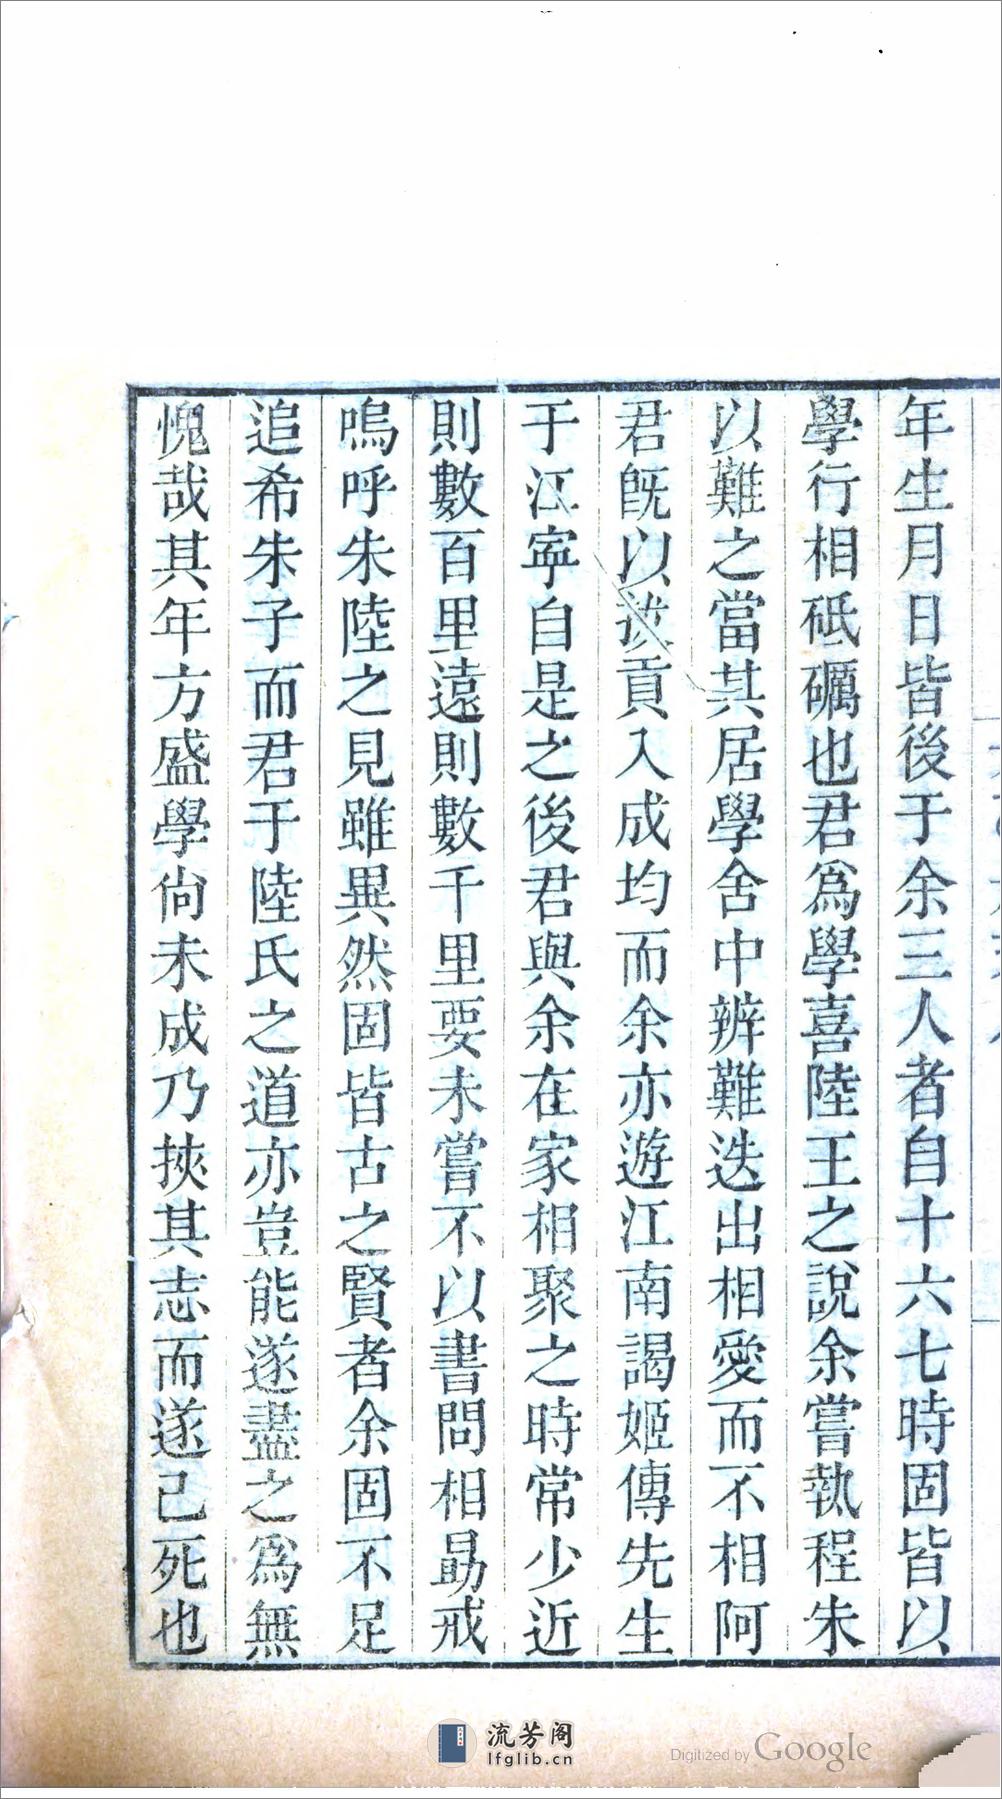 年生月日皆後于余三人者自十六七時固皆以
學行相砥礪也君爲學喜陸王之說余嘗執程朱
以難之當其居學舍中辨難迭出相愛而不相阿
君旣以拔貢入成均而余亦遊江南謁姬傳先生
于江寧自是之後君與余在家相聚之時常少近
則數百里遠則數千里要未嘗不以書問相勗戒
嗚呼朱陸之見雖異然固皆古之賢者余固不足
追希朱子而君于陸氏之道亦豈能遂盡之爲無
愧哉其年方盛學尙未成乃挾其志而遂已死也
流芳阁
lfglib.cn
Digitized by Google